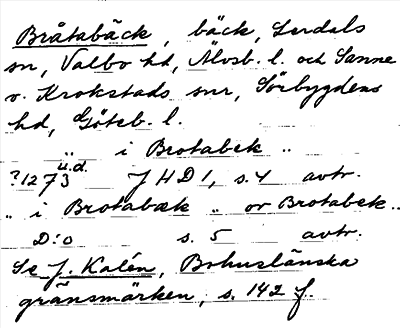 Bråtabäck, bäck, Lerdals
sn, Valbo hd, Älvsb. l. och Sanne
o. Krokstads snr, Sörbygdens
hd, Göteb. l.
„ i Brotabek „
?1273 u.d. JHD 1, s. 4 avtr.
„ i Brotabæk „ or Brotabek„
D:o s. 5 avtr.
Se J. Kalén, Bohuslänska
gränsmärken, s. 142 f.